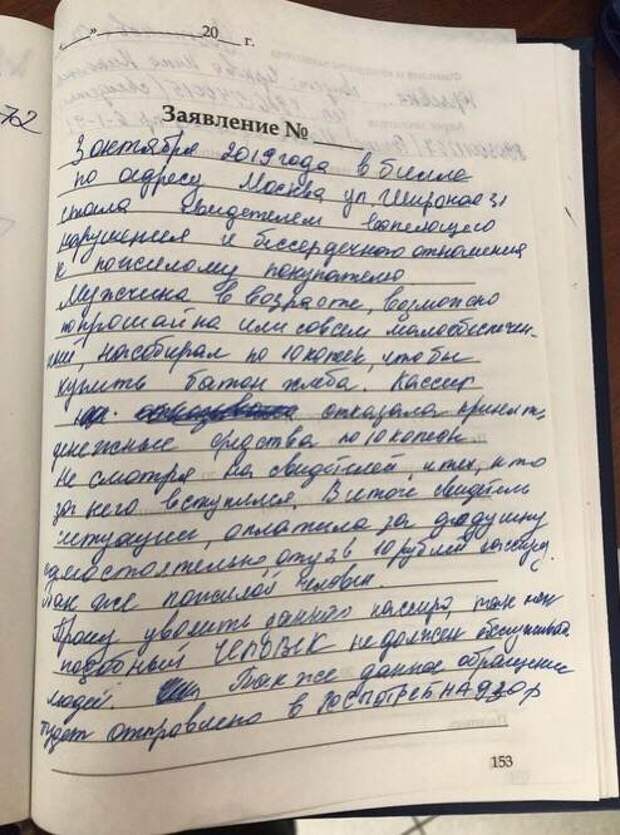 "___" ____________ 20___ г.
72
Заявление № ____
3 октября 2019 года в билле
по адресу Москва ул. Широкая 31
стала свидетелем вопеющего
нарушения и бессердечного отношения
к пожилому покупателю.
Мужчина в возрасте, возможно
попрошайка или совсем малообеспечен-
ный, насобирал по 10 копеек, чтобы
купить батон хлеба. Кассир
отказала принять
денежные средства по 10 копеек.
Не смотря на свидетелей, и тех, кто
за него вступился. В итоге свидетель
ситуации, оплатила за дедушку
самостоятельно, отдав 10 рублей кассиру.
Так же пожилой человек.
Прошу уволить данного кассира, так как
подобный ЧЕЛОВЕК не должен обслуживать
людей. Также данное обращение
будет отправлено в РОСПОТРЕБНАДЗОР
153